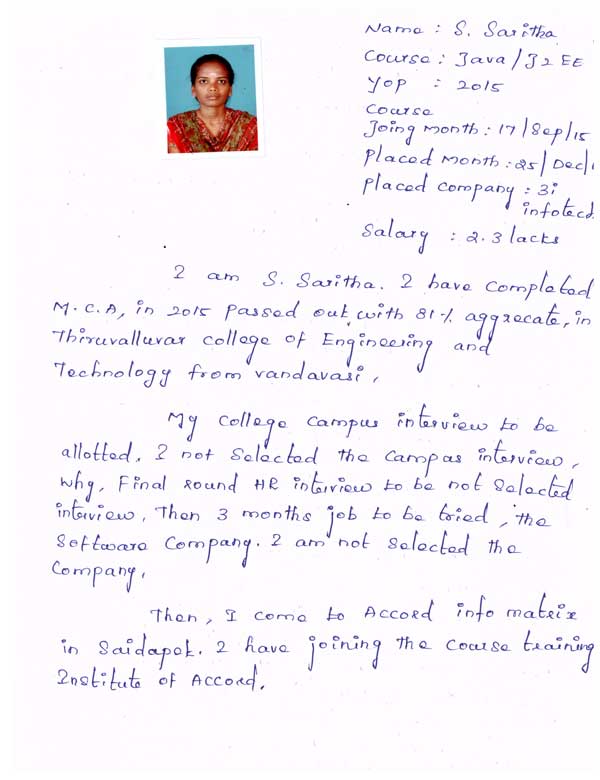 Name : S. Saritha
Course : Java / J2 EE
YOP : 2015
Course
Joing month : 17/Sep/15
placed Month : 25/Dec/
placed company : 3i
infotecd
Salary : 2.3 lacks
I am S. Saritha. I have completed
M.C.A, in 2015 passed out with 81% aggrecate, in
Thiruvalluvar college of Engineering and
Technology from vandavasi,
My college campus interview to be
allotted. I not selected the campas interview,
why, Final round HR interview to be not selected
interview. Then 3 months job to be tried, the
Software Compang. I am not selected the
Company.
Then, I come to Accord info matrix
in Saidapet. I have joining the course training
Institute of Accord.